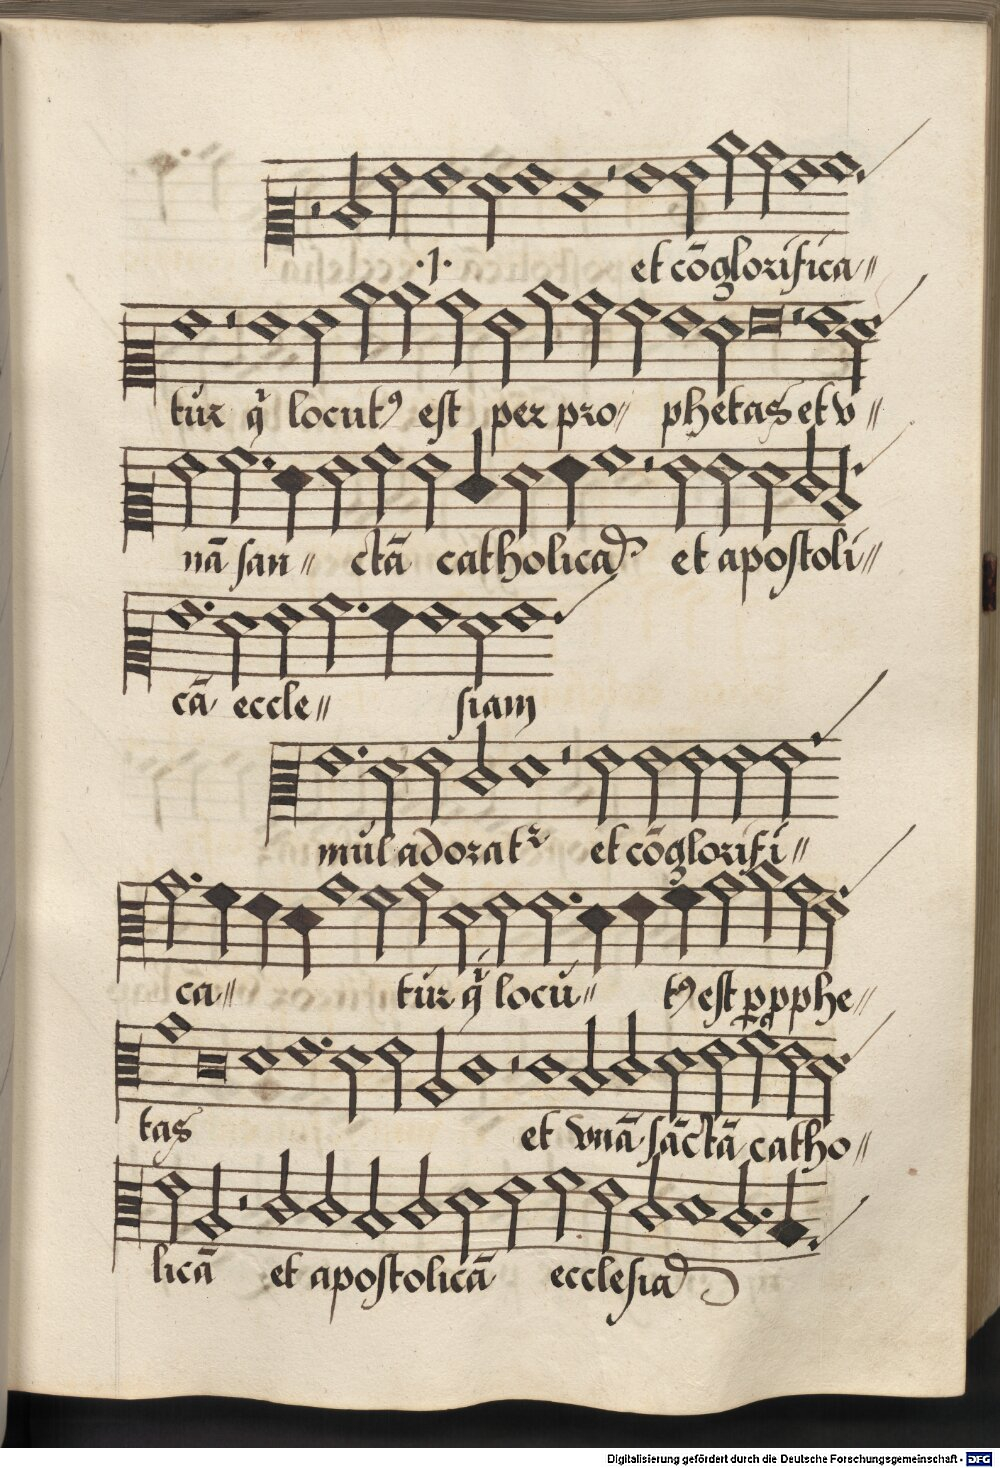 ·1· et cõglorifica//
tur q̃ locutꝰ est per pro// phetas et v//
nã san// ctã catholicã et apostoli//
cã eccle// siam
mul adorat᷑ et cõglorifi//
ca// tur q̃ locu// tꝰ est ꝑ ꝓphe//
tas et vnã sãctã catho//
licã et apostolicã ecclesiã
Digitalisierung gefördert durch die Deutsche Forschungsgemeinschaft - DFG